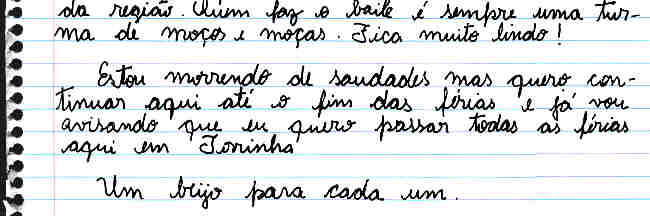 da região. Quem faz o baile é sempre uma tur-
ma de moços e moças. Fica muito lindo!
Estou morrendo de saudades mas quero con-
tinuar aqui até o fim das férias e já vou
avisando que eu quero passar todas as férias
aqui em Torrinha
Um beijo para cada um.